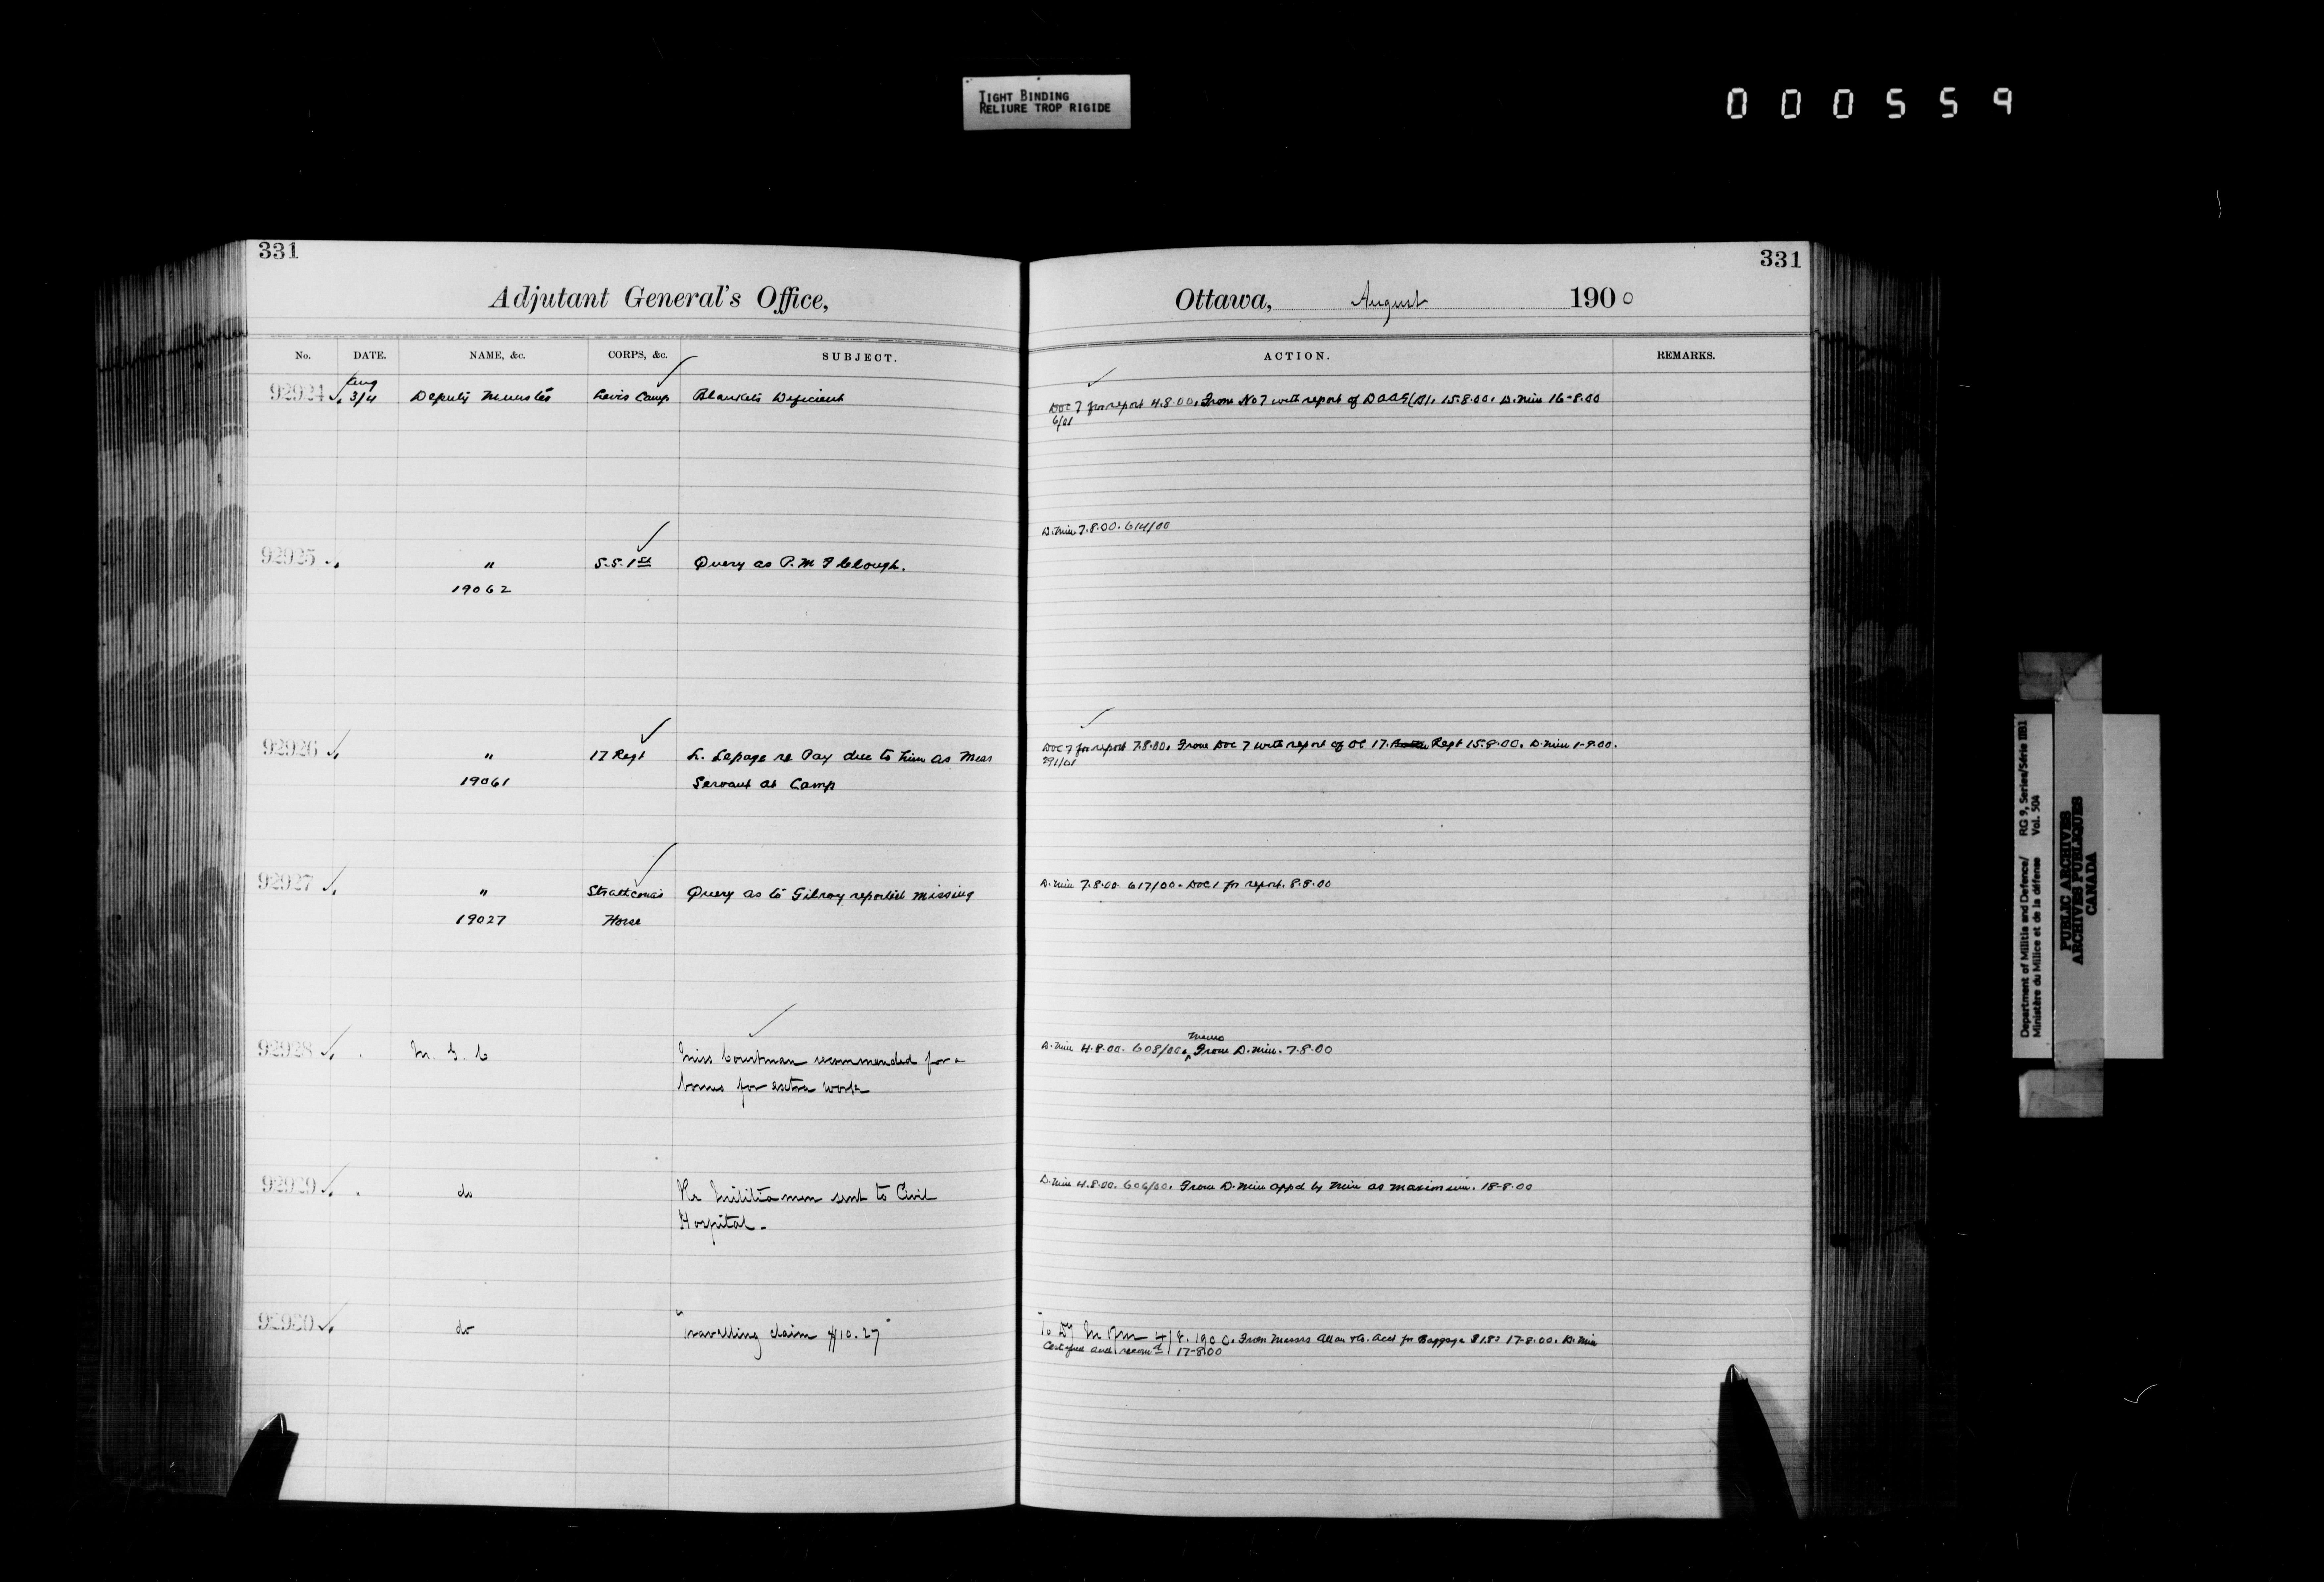 TIGHT BINDING
RELIURE TROP RIGIDE
000559
331
Adjutant General's Office,
No. DATE. NAME, &c. CORPS, &c. SUBJECT.
92924 Aug 3/4 Deputy Minister Levis Camp Blankets Deficient
92925 " S.S. 1st Query as P.M. Clough.
19062
92926 " 17 Regt L. Lepage re Pay due to him as Mess
19061 Servant at Camp
92927 " Strathcona's Query as to Gilroy reported missing
19027 Horse
92928 M. G. C Miss Courtman recommended for a
bonus for extra work
92929 do Re Militia men sent to Civil
Hospital -
92930 do "Travelling claim $10.27"
331
Ottawa, August 1900
ACTION. REMARKS.
DOC 7 for report 4.8.00. From No 7 with report of DAAG 15.8.00. D. Min 16-8.00
6/01
D. Min 7.8.00. 614/00
DOC 7 for report 7.8.00. From DOC 7 with report of OC 17. Regt 15.8.00. D. Min 1-9.00.
291/01
D. Min 7.8.00 617/00 - DOC 1 for report. 8.8.00
Memo
D. Min 4.8.00. 608/00. From D. Min. 7.8.00
D. Min 4.8.00. 606/00. From D. Min appd by Min as maximum. 18-8.00
To Dy Min 4/8.1900. From Messrs Allan & Co. acct for Baggage 17-8.00. D. Min
Certified and recomd 17-8.00
Department of Militia and Defence/ RG 9, Series/Série IIB1
Ministère du Milice et de la défense Vol. 504
PUBLIC ARCHIVES
ARCHIVES PUBLIQUES
CANADA